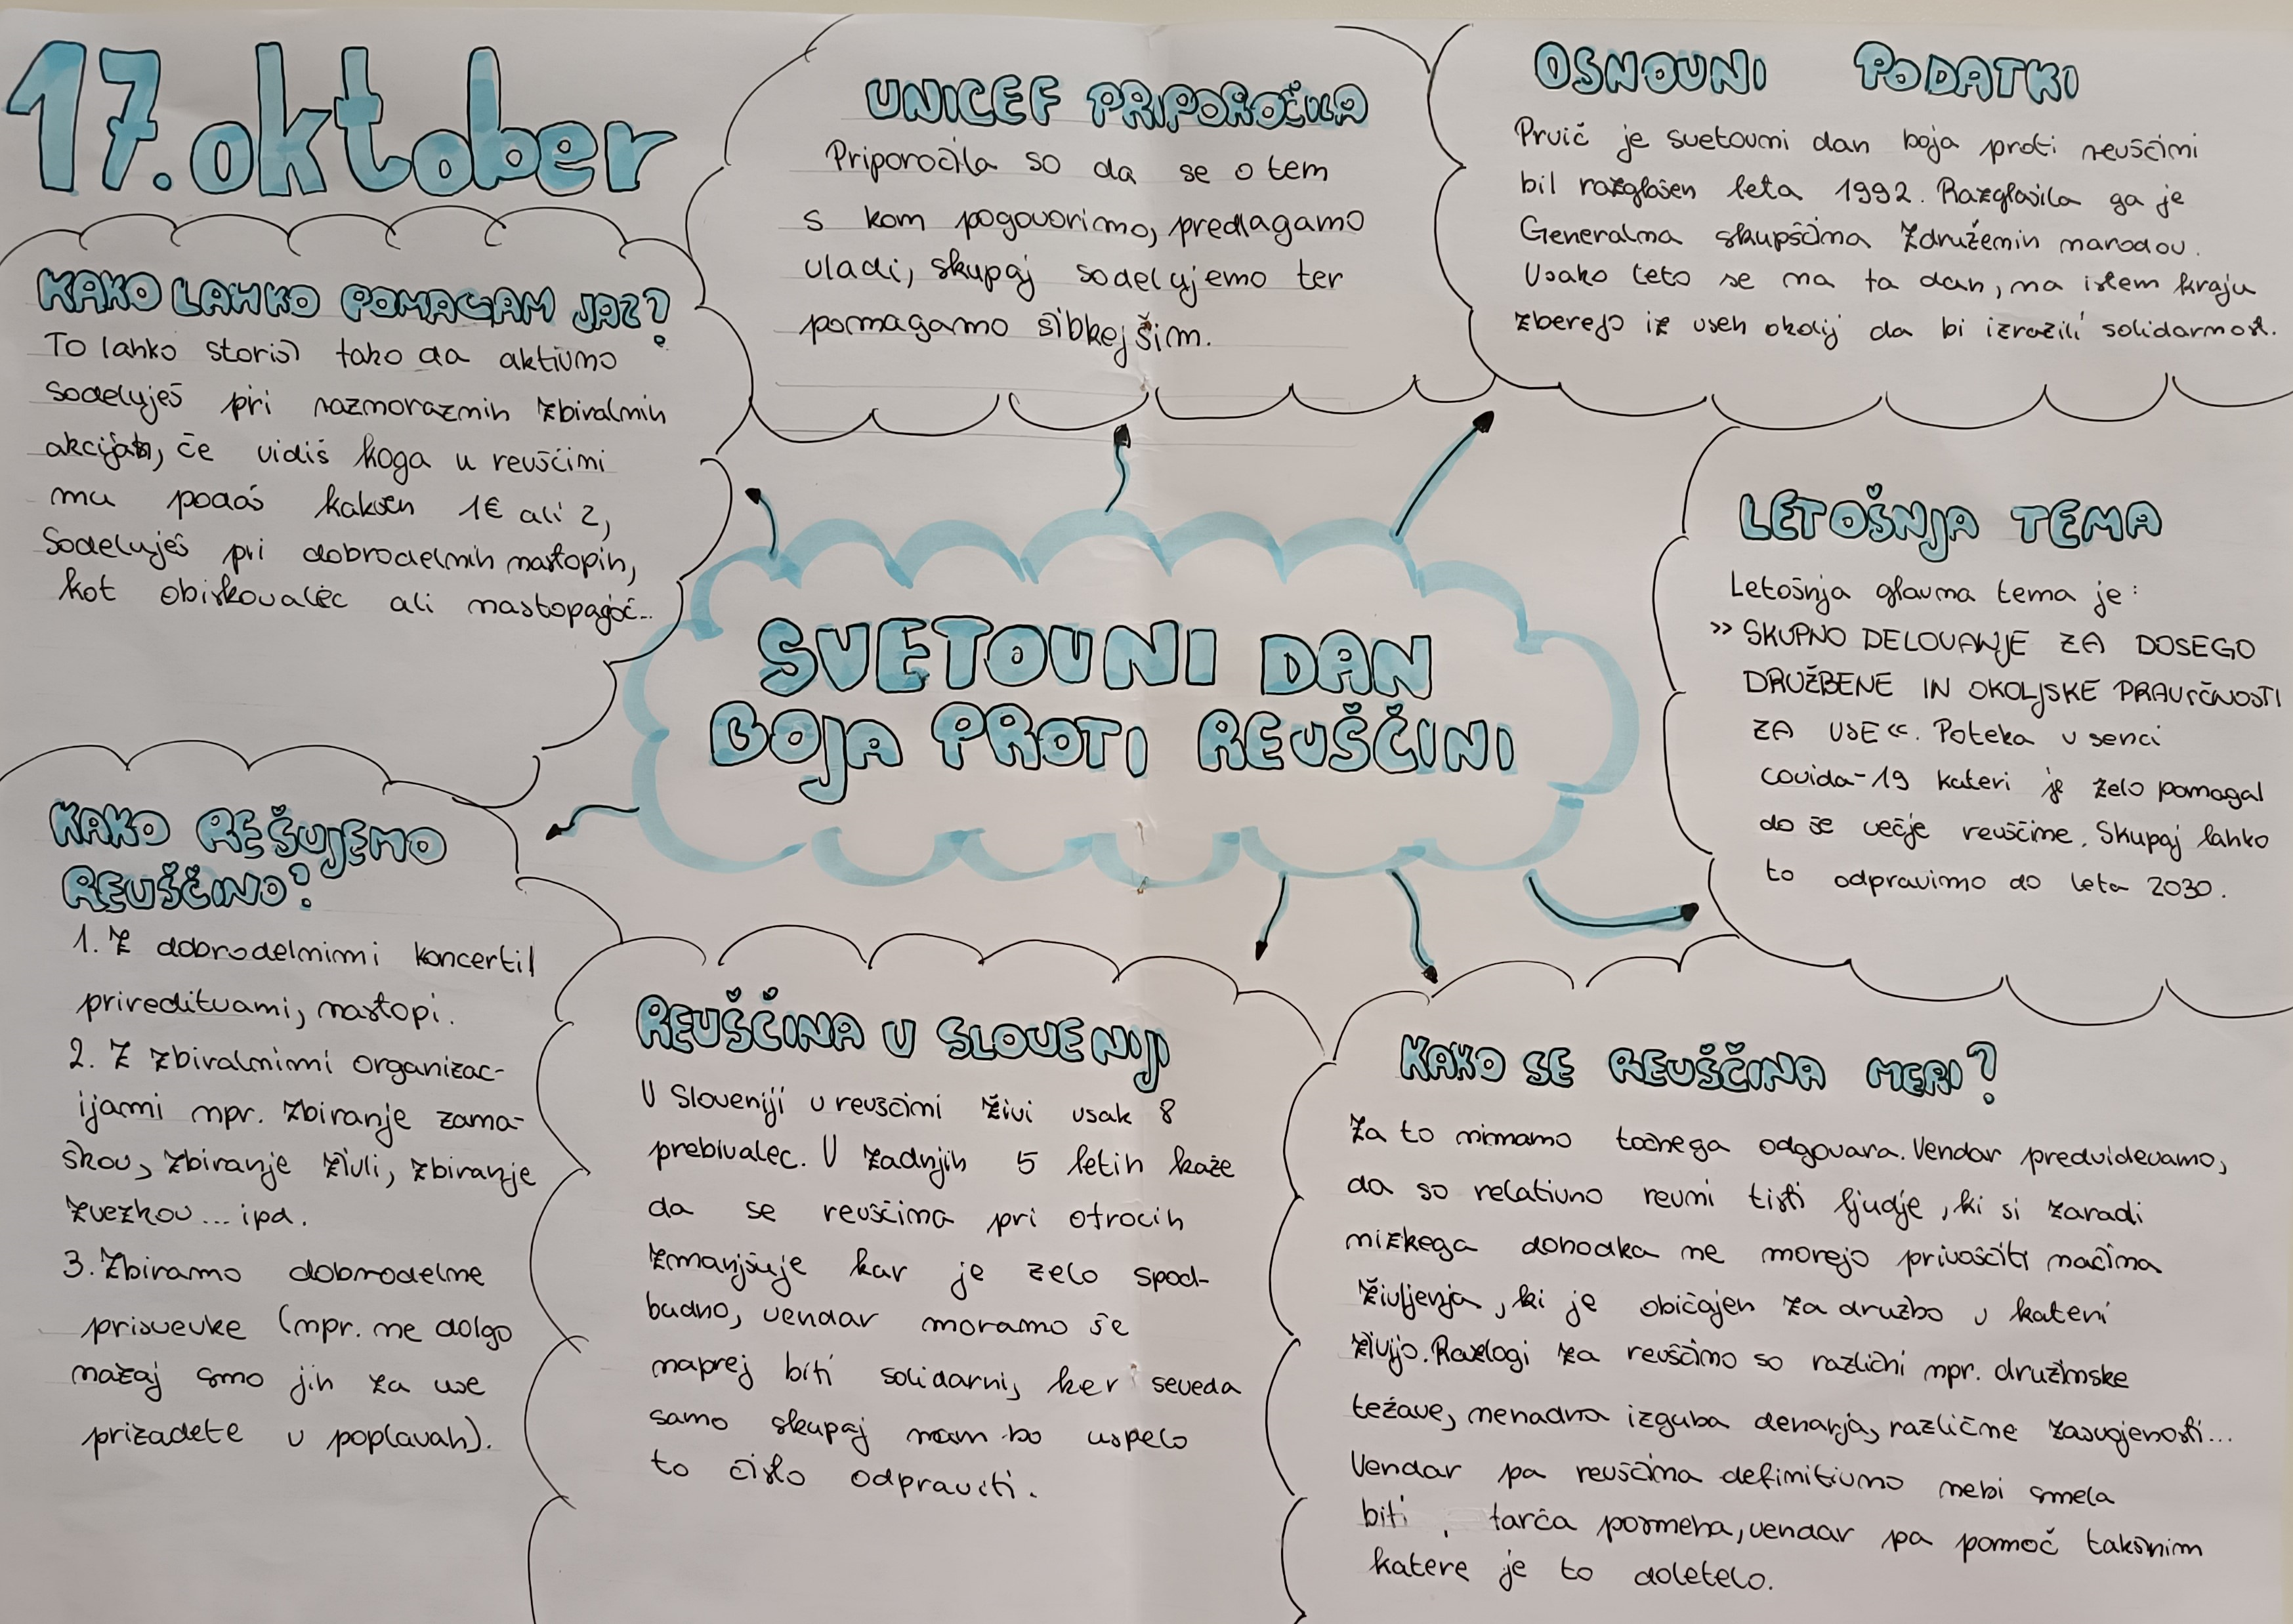 17. oktober
UNICEF PRIPOROČILA
Priporočila so da se o tem
s kom pogovorimo, predlagamo
vladi, skupaj sodelujemo ter
pomagamo šibkejšim.
OSNOVNI PODATKI
Prvič je svetovni dan boja proti revščini
bil razglašen leta 1992. Razglasila ga je
Generalna skupščina Združenin narodov.
Vsako leto se na ta dan, na istem kraju
zberejo iz vseh okolij da bi izrazili solidarnost.
KAKO LAHKO POMAGAM JAZ?
To lahko storiš tako da aktivno
Sodeluješ pri raznoraznih zbiralnih
akcijah, če vidiš koga v revščini
mu podaš kakšen 1€ ali 2,
Sodeluješ pri dobrodelnih nastopih,
kot obiskovalec ali nastopajoč...
SVETOVNI DAN
BOJA PROTI REVŠČINI
LETOŠNJA TEMA
Letošnja glavna tema je:
»SKUPNO DELOVANJE ZA DOSEGO
DRUŽBENE IN OKOLJSKE PRAVIČNOSTI
ZA VSE«. Poteka v senci
covida-19 kateri je zelo pomagal
do še večje revščine. Skupaj lahko
to odpravimo do leta 2030.
KAKO REŠUJEMO
REVŠČINO?
1. Z dobrodelnimi koncerti,
prireditvami, nastopi.
2. Z zbiralnimi organizac-
ijami npr. zbiranje zama-
škov, zbiranje živli, zbiranje
zvezkov... ipd.
3. Zbiramo dobrodelne
prisvevke (npr. ne dolgo
nazaj smo jih za vse
prizadete v poplavah).
REVŠČINA V SLOVENIJI
V Sloveniji v revščini živi vsak 8
prebivalec. V zadnjih 5 letih kaže
da se revščina pri otrocih
zmanjšuje kar je zelo spod-
budno, vendar moramo še
naprej biti solidarni, ker seveda
samo skupaj nam bo uspelo
to čislo odpraviti.
KAKO SE REVŠČINA MERI?
Za to nimamo točnega odgovara. Vendar predvidevamo,
da so relativno revni tisti ljudje, ki si zaradi
nizkega dohodka ne morejo privoščiti načina
življenja, ki je običajen za družbo v kateri
živijo. Razlogi za revščino so različni npr. družinske
težave, nenadna izguba denarja, različne zasvojenosti...
Vendar pa revščina definitivno nebi smela
biti tarča posmeha, vendar pa pomoč takšnim
katere je to doletelo.